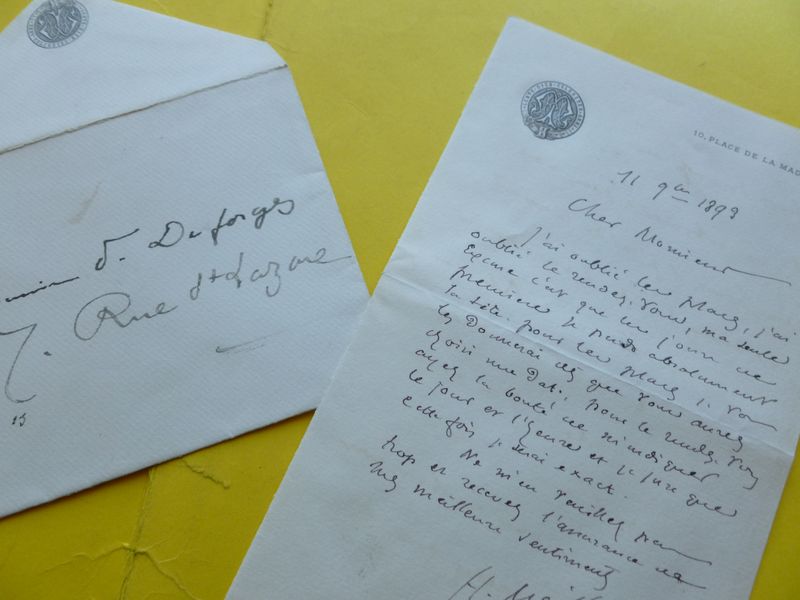 S. Deforges
7. Rue St Lazare
10, PLACE DE LA MAD
11 9bre 1893
Cher Monsieur
J'ai oublié les places, j'ai
oublié le rendez-vous, ma seule
excuse c'est que les jours de
première je perds absolument
la tête. pour les places je vous
les donnerai dès que vous aurez
choisi une date; pour le rendez-vous
ayez la bonté de m'indiquer
le jour et l'heure et je jure que
cette fois je serai exact.
Ne m'en veuillez pas
trop et recevez l'assurance de
mes meilleurs sentiments
H.